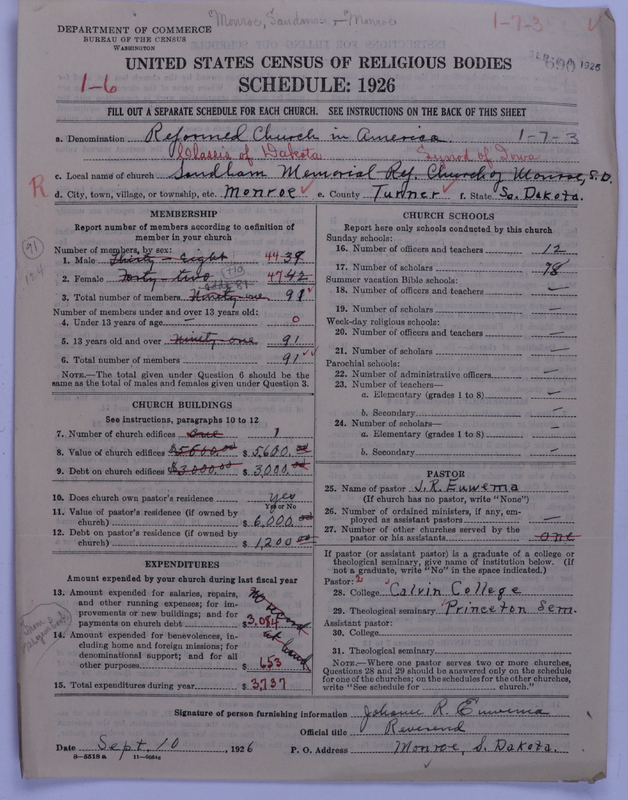 Monroe, Sandham + Monroe
1-7-3
DEPARTMENT OF COMMERCE
BUREAU OF THE CENSUS
WASHINGTON
UNITED STATES CENSUS OF RELIGIOUS BODIES
1-6
SCHEDULE: 1926
FILL OUT A SEPARATE SCHEDULE FOR EACH CHURCH. SEE INSTRUCTIONS ON THE BACK OF THIS SHEET
a. Denomination Reformed Church in America 1-7-3
Classis of Dakota Synod of Iowa
c. Local name of church Sandham Memorial Ref. Church of Monroe, S.D.
R
d. City, town, village, or township, etc. Monroe e. County Turner f. State So. Dakota.
MEMBERSHIP
Report number of members according to definition of
member in your church
Number of members, by sex:
91
1. Male Thirty-eight 44 39
2. Female Forty-two 47 42
3. Total number of members Ninety-one 91
Number of members under and over 13 years old:
4. Under 13 years of age — 0
5. 13 years old and over ninety-one 91
6. Total number of members 91
NOTE.—The total given under Question 6 should be the
same as the total of males and females given under Question 3.
CHURCH BUILDINGS
See instructions, paragraphs 10 to 12
7. Number of church edifices one 1
8. Value of church edifices $5600.00 $5,600.00
9. Debt on church edifices $3000.00 $3,000.00
10. Does church own pastor's residence yes
Yes or No
11. Value of pastor's residence (if owned by
church) $6,000.00
12. Debt on pastor's residence (if owned by
church) $1,200.00
EXPENDITURES
Amount expended by your church during last fiscal year
13. Amount expended for salaries, repairs,
and other running expenses; for im-
provements or new buildings; and for
payments on church debt $3,084
no record
at hand
14. Amount expended for benevolences, in-
cluding home and foreign missions; for
denominational support; and for all
other purposes $653
15. Total expenditures during year $3,737
CHURCH SCHOOLS
Report here only schools conducted by this church
Sunday schools:
16. Number of officers and teachers 12
17. Number of scholars 78
Summer vacation Bible schools:
18. Number of officers and teachers —
19. Number of scholars —
Week-day religious schools:
20. Number of officers and teachers —
21. Number of scholars —
Parochial schools:
22. Number of administrative officers —
23. Number of teachers—
a. Elementary (grades 1 to 8) —
b. Secondary —
24. Number of scholars—
a. Elementary (grades 1 to 8) —
b. Secondary —
PASTOR
25. Name of pastor J. R. Euwema
(If church has no pastor, write "None")
26. Number of ordained ministers, if any, em-
ployed as assistant pastors —
27. Number of other churches served by the
pastor or his assistants one
If pastor (or assistant pastor) is a graduate of a college or
theological seminary, give name of institution below. (If
not a graduate, write "No" in the space indicated.)
Pastor: 2
28. College Calvin College
29. Theological seminary Princeton Sem.
Assistant pastor:
30. College
31. Theological seminary
NOTE.—Where one pastor serves two or more churches,
Questions 28 and 29 should be answered only on the schedule
for one of the churches; on the schedules for the other churches,
write "See schedule for church."
Signature of person furnishing information Johanne R. Euwema
Official title Reverend
Date Sept. 10, 1926 P. O. Address Monroe, S. Dakota.
8—5518a 11—9051a